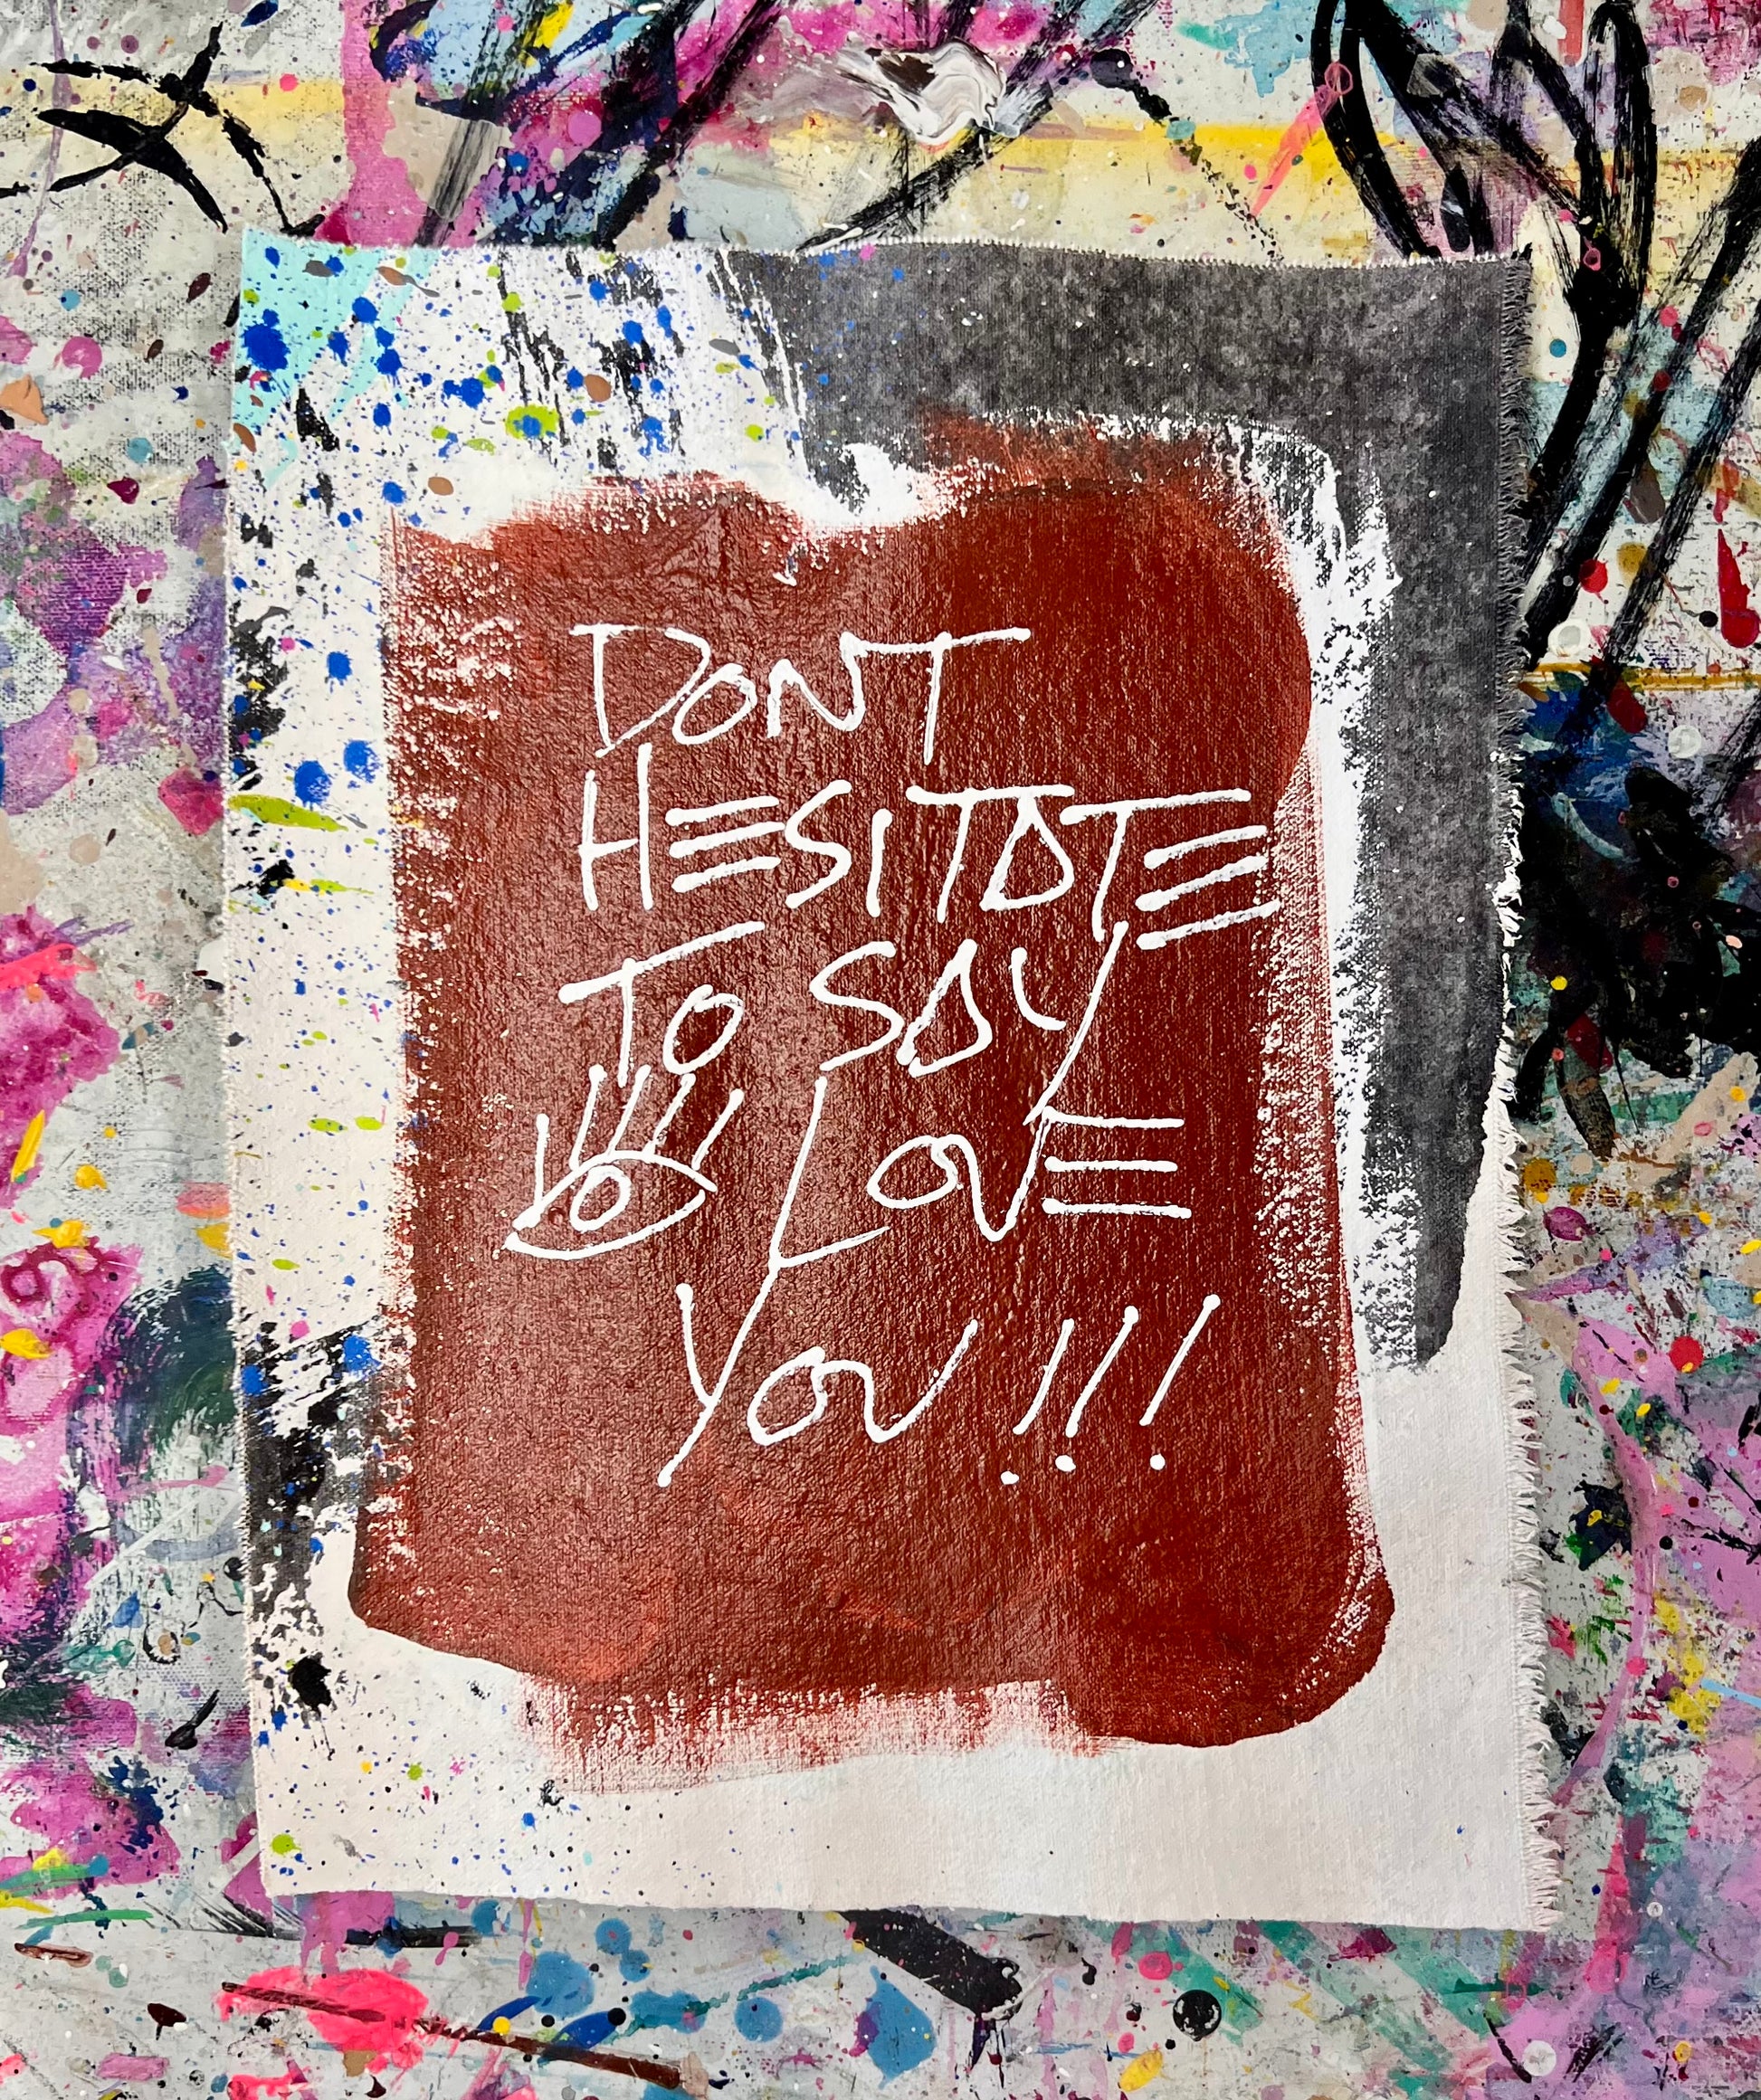 DONT
HESITATE
TO SAY
LOVE
YOU !!!